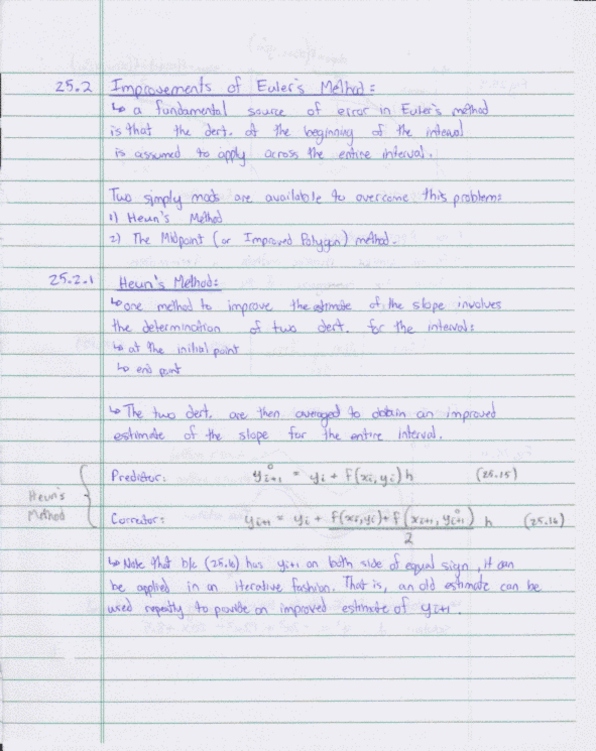 25.2 Improvements of Euler's Method:
↳ a fundamental source of error in Euler's method
is that the deri. at the beginning of the interval
is assumed to apply across the entire interval.
Two simply mods are available to overcome this problem:
1) Heun's Method
2) The Midpoint (or Improved Polygon) method.
25.2.1 Heun's Method:
↳ one method to improve the estimate of the slope involves
the determination of two deri. for the interval:
↳ at the initial point
↳ end point
↳ The two deri. are then averaged to obtain an improved
estimate of the slope for the entire interval.
Heun's Method
Predictor: y⁰ᵢ₊₁ = yᵢ + f(xᵢ, yᵢ) h (25.15)
Corrector: yᵢ₊₁ = yᵢ + (f(xᵢ, yᵢ) + f(xᵢ₊₁, y⁰ᵢ₊₁))/2 h (25.16)
↳ Note that b/c (25.16) has yᵢ₊₁ on both side of equal sign, it can
be applied in an iterative fashion. That is, an old estimate can be
used to provide an improved estimate of yᵢ₊₁.